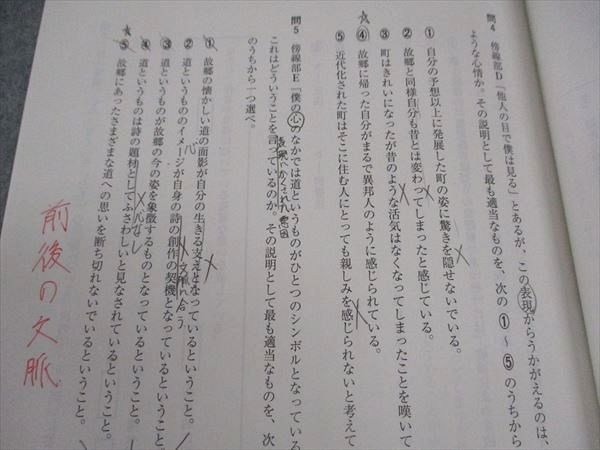 問4 傍線部D「他人の目で僕は見る」とあるが、この表現からうかがえるのは、
ような心情か。その説明として最も適当なものを、次の①～⑤のうちから
① 自分の予想以上に発展した町の姿に驚きを隠せないでいる。
② 故郷と同様自分も昔とは変わってしまったと感じている。
③ 町はきれいになったが昔のような活気はなくなってしまったことを嘆いて
④ 故郷に帰った自分がまるで異邦人のように感じられている。
⑤ 近代化された町はそこに住む人にとっても親しみを感じられないと考えて
問5 傍線部E「僕の心のなかでは道というものがひとつのシンボルとなっている
これはどういうことを言っているのか。その説明として最も適当なものを、次
のうちから一つ選べ。
① 故郷の懐かしい道の面影が自分の生きる支えとなっているということ。
② 道というもののイメージが自身の詩の創作の契機となっているということ。
③ 道というものが故郷の今の姿を象徴するものとなっているということ。
④ 道というものは詩の題材としてふさわしいと見なされているということ。
⑤ 故郷にあったさまざまな道への思いを断ち切れないでいるということ。
前後の文脈